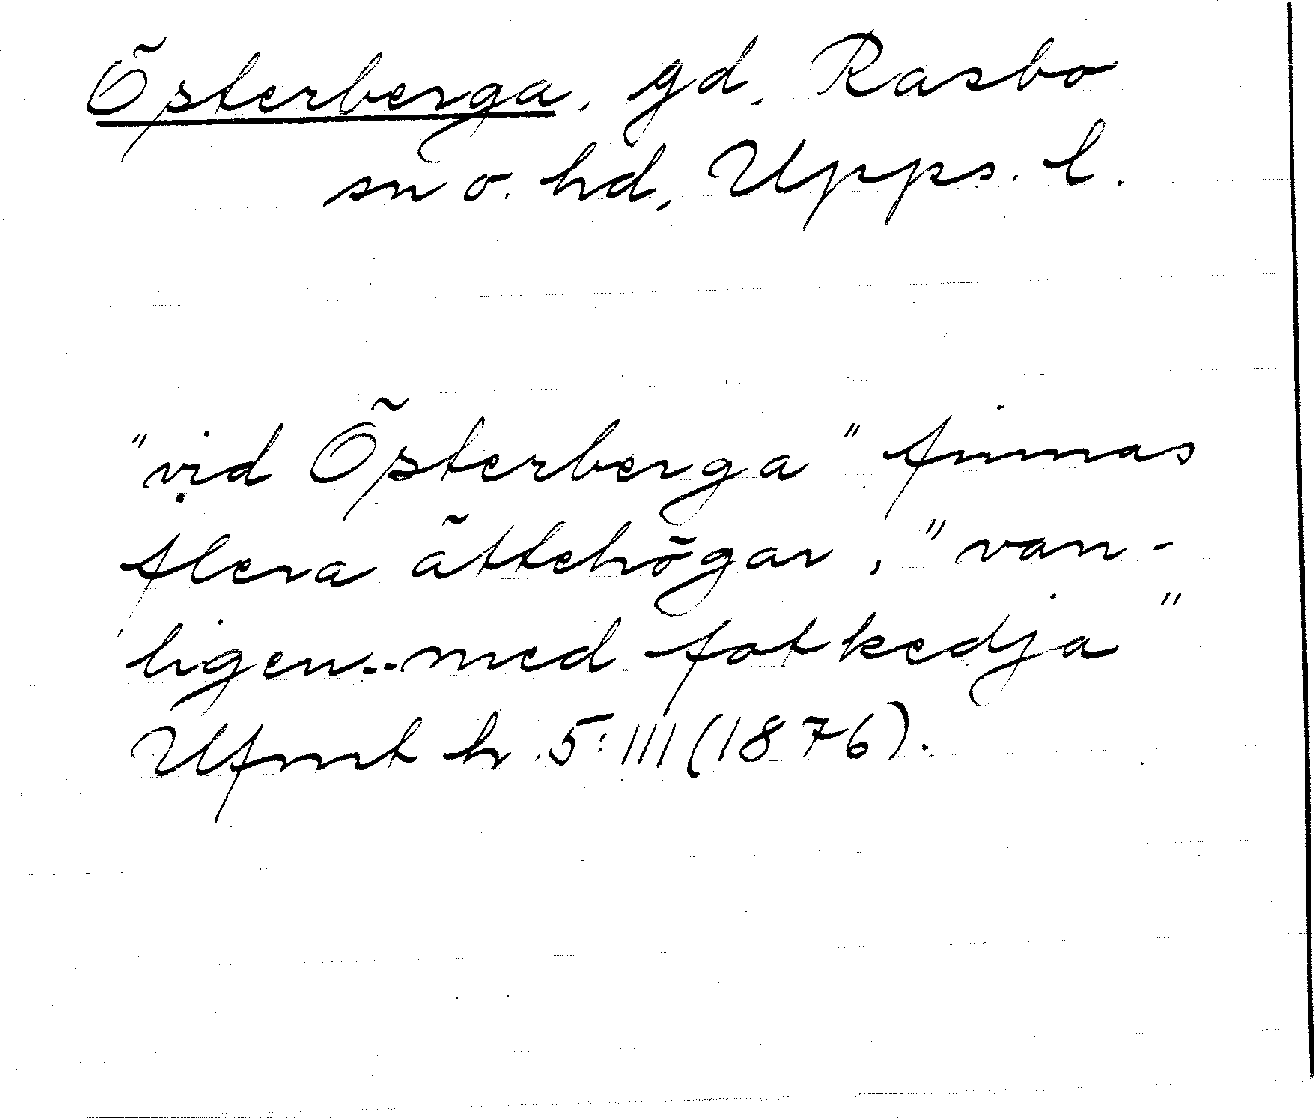 Österberga, gd, Rasbo
sn o. hd, Upps. l.
"vid Österberga" finnas
flera ättehögar, "van-
ligen.. med fotkedja"
Ufmt h. 5: III (1876).